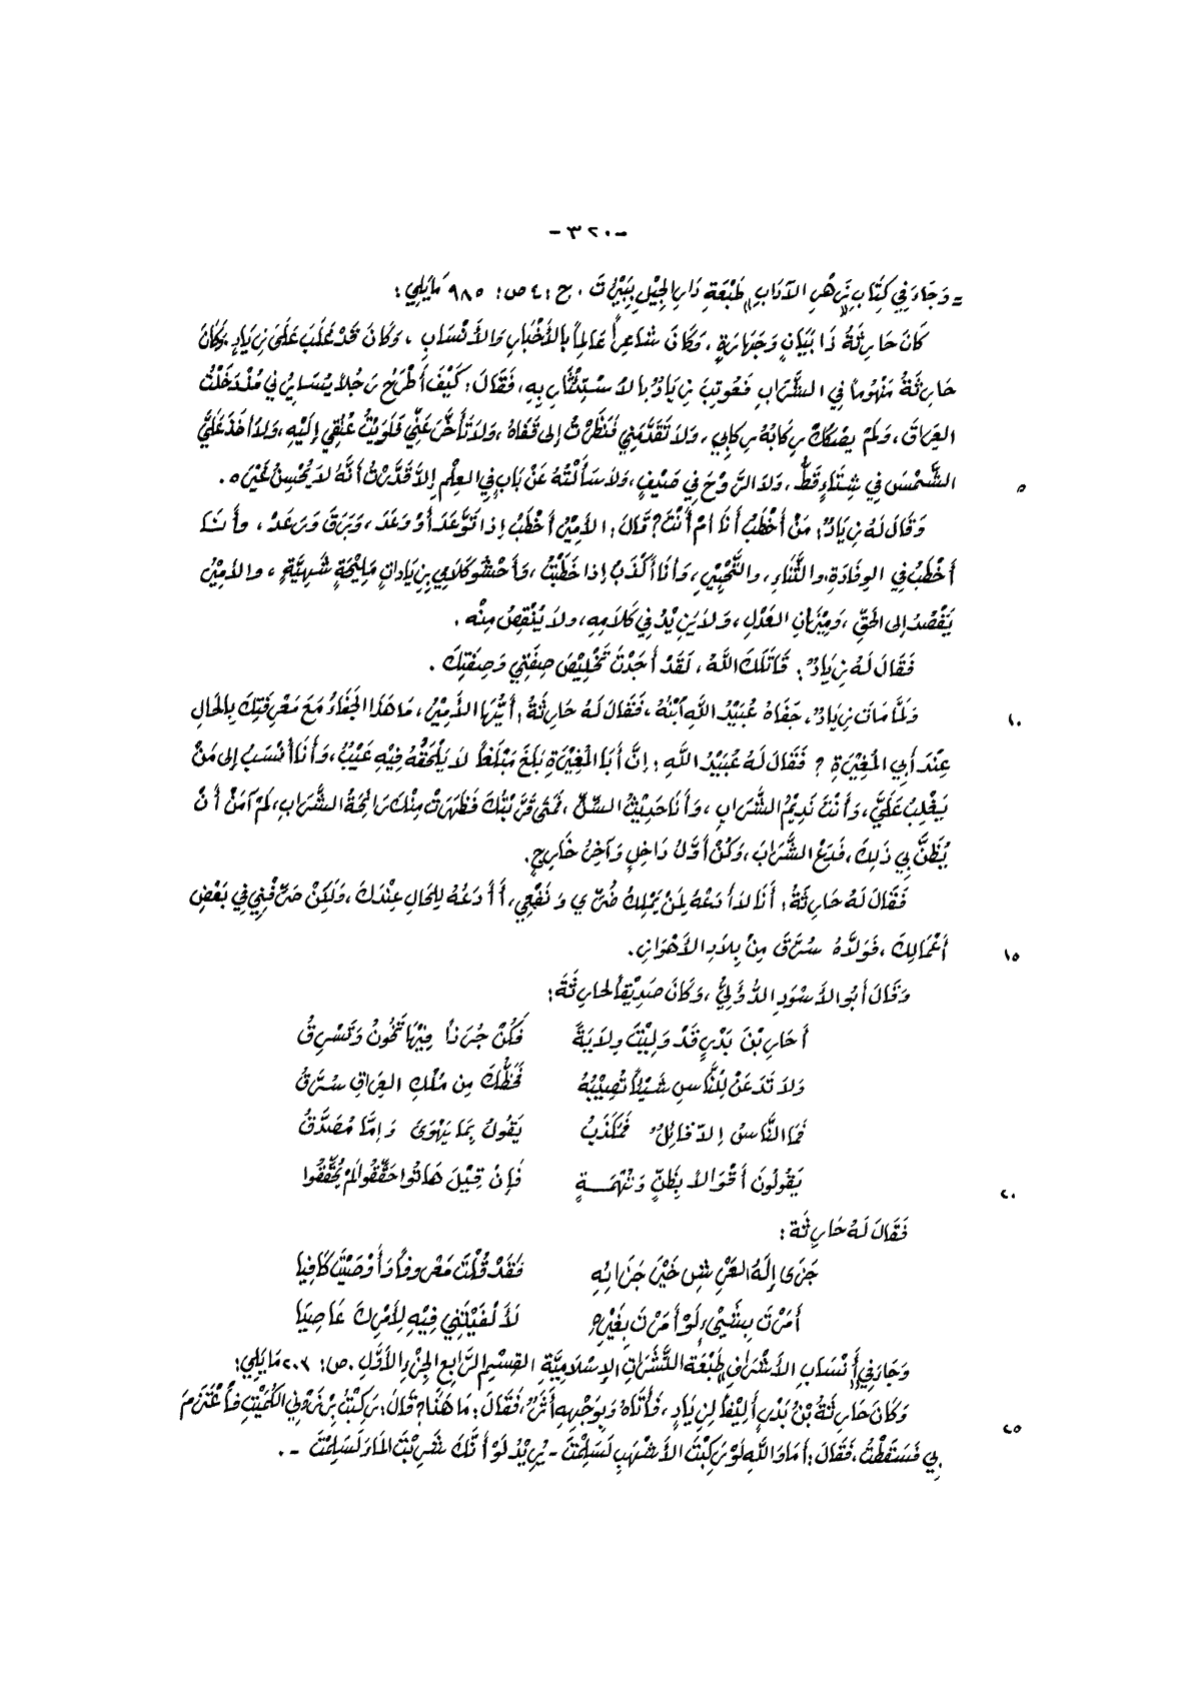 -٣٢٠-
= وَجَاءَ فِي كِتَابِ زَهْرِ الآدَابِ، طَبْعَةِ دَارِ الجِيْلِ بِبَيْرُوتَ. ج: ٤ ص: ٩٨٥ مَايَلِي:
كَانَ حَارِثَةُ ذَا بَيَانٍ وَجَهَارَةٍ، وَكَانَ شَاعِراً عَالِماً بِالأَخْبَارِ وَالأَنْسَابِ، وَكَانَ قَدْ غَلَبَ عَلَى زِيَادٍ، وَكَانَ
حَارِثَةُ مَنْهُوماً فِي الشَّرَابِ فَعُوتِبَ زِيَادٌ بِالاسْتِئْثَارِ بِهِ، فَقَالَ: كَيْفَ أَطْرَحُ رَجُلاً يُسَايِرُنِي مُنْذُ دَخَلْتُ
العِرَاقَ، وَلَمْ يَصْكُكْ رِكَابُهُ رِكَابِي، وَلَا تَقَدَّمَنِي فَنَظَرْتُ إِلى قَفَاهُ، وَلَا تَأَخَّرَ عَنِّي فَلَوَيْتُ عُنُقِي إِلَيْهِ، وَلَا أَخَذَ عَلَيَّ
الشَّمْسَ فِي شِتَاءٍ قَطُّ، وَلَا الرَّوْحَ فِي صَيْفٍ، وَلَا سَأَلْتُهُ عَنْ بَابٍ فِي العِلْمِ إِلَّا قَدَّرْتُ أَنَّهُ لَا يُحْسِنُ غَيْرَهُ. ٥
وَقَالَ لَهُ زِيَادٌ: مَنْ أَخْطَبُ أَنَا أَمْ أَنْتَ؟ قَالَ: الأَمِيْرُ أَخْطَبُ إِذَا تَوَعَّدَ أَوْ وَعَدَ، وَبَرَقَ وَرَعَدَ، وَأَنَا
أَخْطَبُ فِي الوِفَادَةِ، وَالثَّنَاءِ، وَالتَّحْبِيْرِ، وَأَنَا أَكْذَبُ إِذَا خَطَبْتُ، وَأَحْشُو كَلَامِي بِزِيَادَاتٍ مَلِيْحَةٍ شَهِيَّةٍ، وَالأَمِيْرُ
يَقْصُدُ إِلى الحَقِّ، وَمِيْزَانِ العَدْلِ، وَلَا يَزِيْدُ فِي كَلَامِهِ، وَلَا يُنْقِصُ مِنْهُ.
فَقَالَ لَهُ زِيَادٌ: قَاتَلَكَ اللَّهُ، لَقَدْ أَجَدْتَ تَخْلِيْصَ صِفَتِي وَصِفَتِكَ.
وَلَمَّا مَاتَ زِيَادٌ، جَفَاهُ عُبَيْدُ اللَّهِ ابْنُهُ، فَقَالَ لَهُ حَارِثَةُ: أَيُّهَا الأَمِيْرُ، مَا هَذَا الجَفَاءُ مَعَ مَعْرِفَتِكَ بِالحَالِ ١٠
عِنْدَ أَبِي المُغِيْرَةِ؟ فَقَالَ لَهُ عُبَيْدُ اللَّهِ: إِنَّ أَبَا المُغِيْرَةِ بَلَغَ مَبْلَغاً لَا يَلْحَقُهُ فِيْهِ عَيْبٌ، وَأَنَا أُنْسَبُ إِلى مَنْ
يَغْلِبُ عَلَيَّ، وَأَنْتَ نَدِيْمُ الشَّرَابِ، وَأَنَا حَدِيْثُ السِّنِّ، فَمَتَى قَرَّبْتُكَ فَظَهَرَتْ مِنْكَ رَائِحَةُ الشَّرَابِ، لَمْ آمَنْ أَنْ
يُظَنَّ بِي ذَلِكَ، فَدَعِ الشَّرَابَ، وَكُنْ أَوَّلَ دَاخِلٍ وَآخِرَ خَارِجٍ.
فَقَالَ لَهُ حَارِثَةُ: أَنَا لَا أَدَعُهُ لِمَنْ يَمْلِكُ ضُرِّي وَنَفْعِي، أَأَدَعُهُ لِلحَالِ عِنْدَكَ، وَلَكِنْ صَرِّفْنِي فِي بَعْضِ
أَعْمَالِكَ، فَوَلَّاهُ سُرَّقَ مِنْ بِلَادِ الأَهْوَازِ. ١٥
وَقَالَ أَبُو الأَسْوَدِ الدُّؤَلِيُّ، وَكَانَ صَدِيْقاً لِحَارِثَةَ:
أَحَارِ بْنَ بَدْرٍ قَدْ وَلِيْتَ وِلَايَةً فَكُنْ جُرَذاً فِيْهَا تَخُونُ وَتَسْرِقُ
وَلَا تَدَعَنْ لِلنَّاسِ شَيْئاً تُصِيْبُهُ فَحَظُّكَ مِن مُلْكِ العِرَاقِ سُرَّقُ
فَمَا النَّاسُ إِلَّا قَائِلٌ فَمُكَذَّبٌ يَقُولُ بِمَا يَهْوَى وَإِمَّا مُصَدَّقُ
يَقُولُونَ أَقْوَالاً بِظَنٍّ وَتُهْمَةٍ فَإِنْ قِيْلَ هَاتُوا حَقِّقُوا لَمْ يُحَقِّقُوا ٢٠
فَقَالَ لَهُ حَارِثَة:
جَزَى إِلَهُ العَرْشِ خَيْرَ جَزَائِهِ فَقَدْ قُلْتَ مَعْرُوفاً وَأَوْصَيْتَ كَافِيا
أَمَرْتَ بِشَيْءٍ لَوْ أَمَرْتَ بِغَيْرِهِ لَأَلْفَيْتَنِي فِيْهِ لِأَمْرِكَ عَاصِيَا
وَجَاءَ فِي أَنْسَابِ الأَشْرَافِ طَبْعَةِ النَّشَرَاتِ الإِسْلَامِيَّةِ القِسْمِ الرَّابِعِ الجُزْءِ الأَوَّلِ. ص: ٢٠٣ مَايَلِي:
وَكَانَ حَارِثَةُ بْنُ بَدْرٍ أَلِيْفاً لِزِيَادٍ، فَأَتَاهُ وَبِوَجْهِهِ أَثَرٌ، فَقَالَ: مَا هَذَا؟ قَالَ: رَكِبْتُ بِرْذَوْنِي الكُمَيْتَ فَاعْتَزَمَ ٢٥
بِي فَسَقَطْتُ، فَقَالَ: أَمَا وَاللَّهِ لَوْ رَكِبْتَ الأَشْهَبَ لَسَلِمْتَ - يُرِيْدُ لَوْ أَنَّكَ شَرِبْتَ المَاءَ لَسَلِمْتَ -.